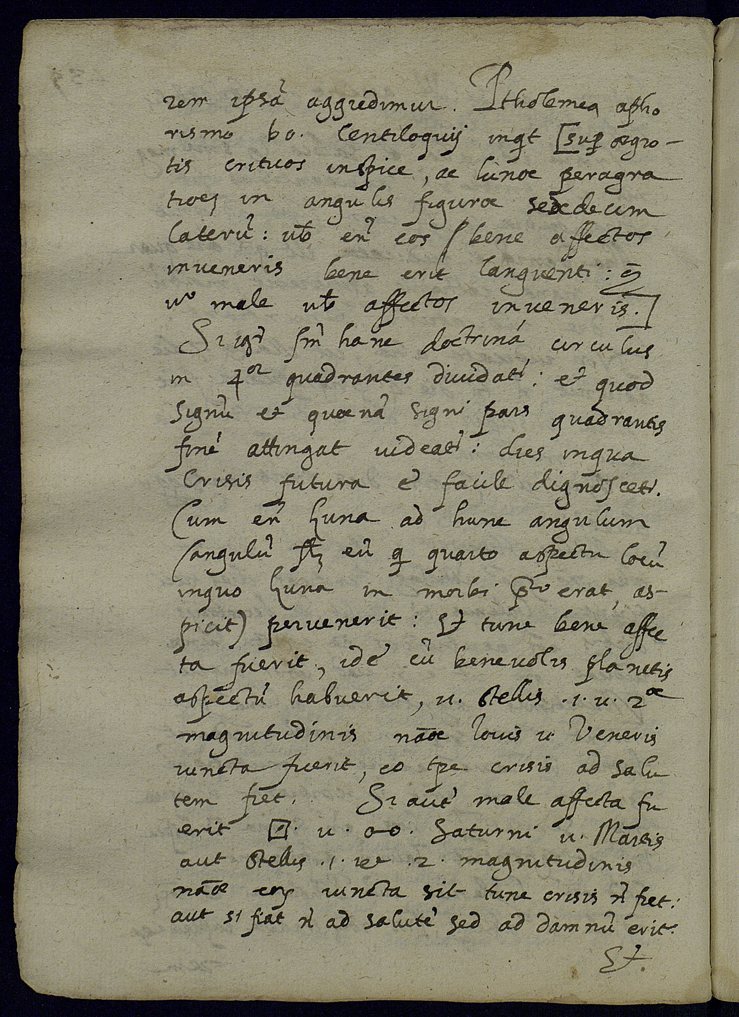 rem ipsã aggredimur. Ptholemeq apho
rismo 60. Centiloquij inqt [sup ægro-
tis criticos inspice, ac lunæ peragra
tioēs in angulis figuræ sedecim
laterũ: ubi em̃ eos bene affectos
inveneris bene erit languenti:
vº male ubi affectos inveneris.]
Si igr̃ hanc doctrinã circulus
in 4or quadrantes dividatr̃: et quod
signũ et quænã signi pars quadrantis
finẽ attingat videatr̃: dies inqua
Crisis futura ẽ facile dignoscetr.
Cum em̃ Luna ad hunc angulum
(angulũ eũ q quarto aspectu locũ
inquo Luna in morbi pº erat, as-
picit) pervenerit: Et tunc bene affec
ta fuerit, idẽ cũ benevolis planetis
aspectũ habuerit, u. stellis .1. u. 2æ
magnitudinis nãæ Iovis u. Veneris
iuncta fuerit, eo tpe crisis ad salu
tem fiet. Si autẽ male affecta fu
erit □. u. oo. Saturni u. Martis
aut stellis .1. vel .2. magnitudinis
nãæ eoʒ iuncta sit tunc crisis ñ fiet:
aut si fiat ñ ad salutẽ sed ad damnũ erit.
Et.